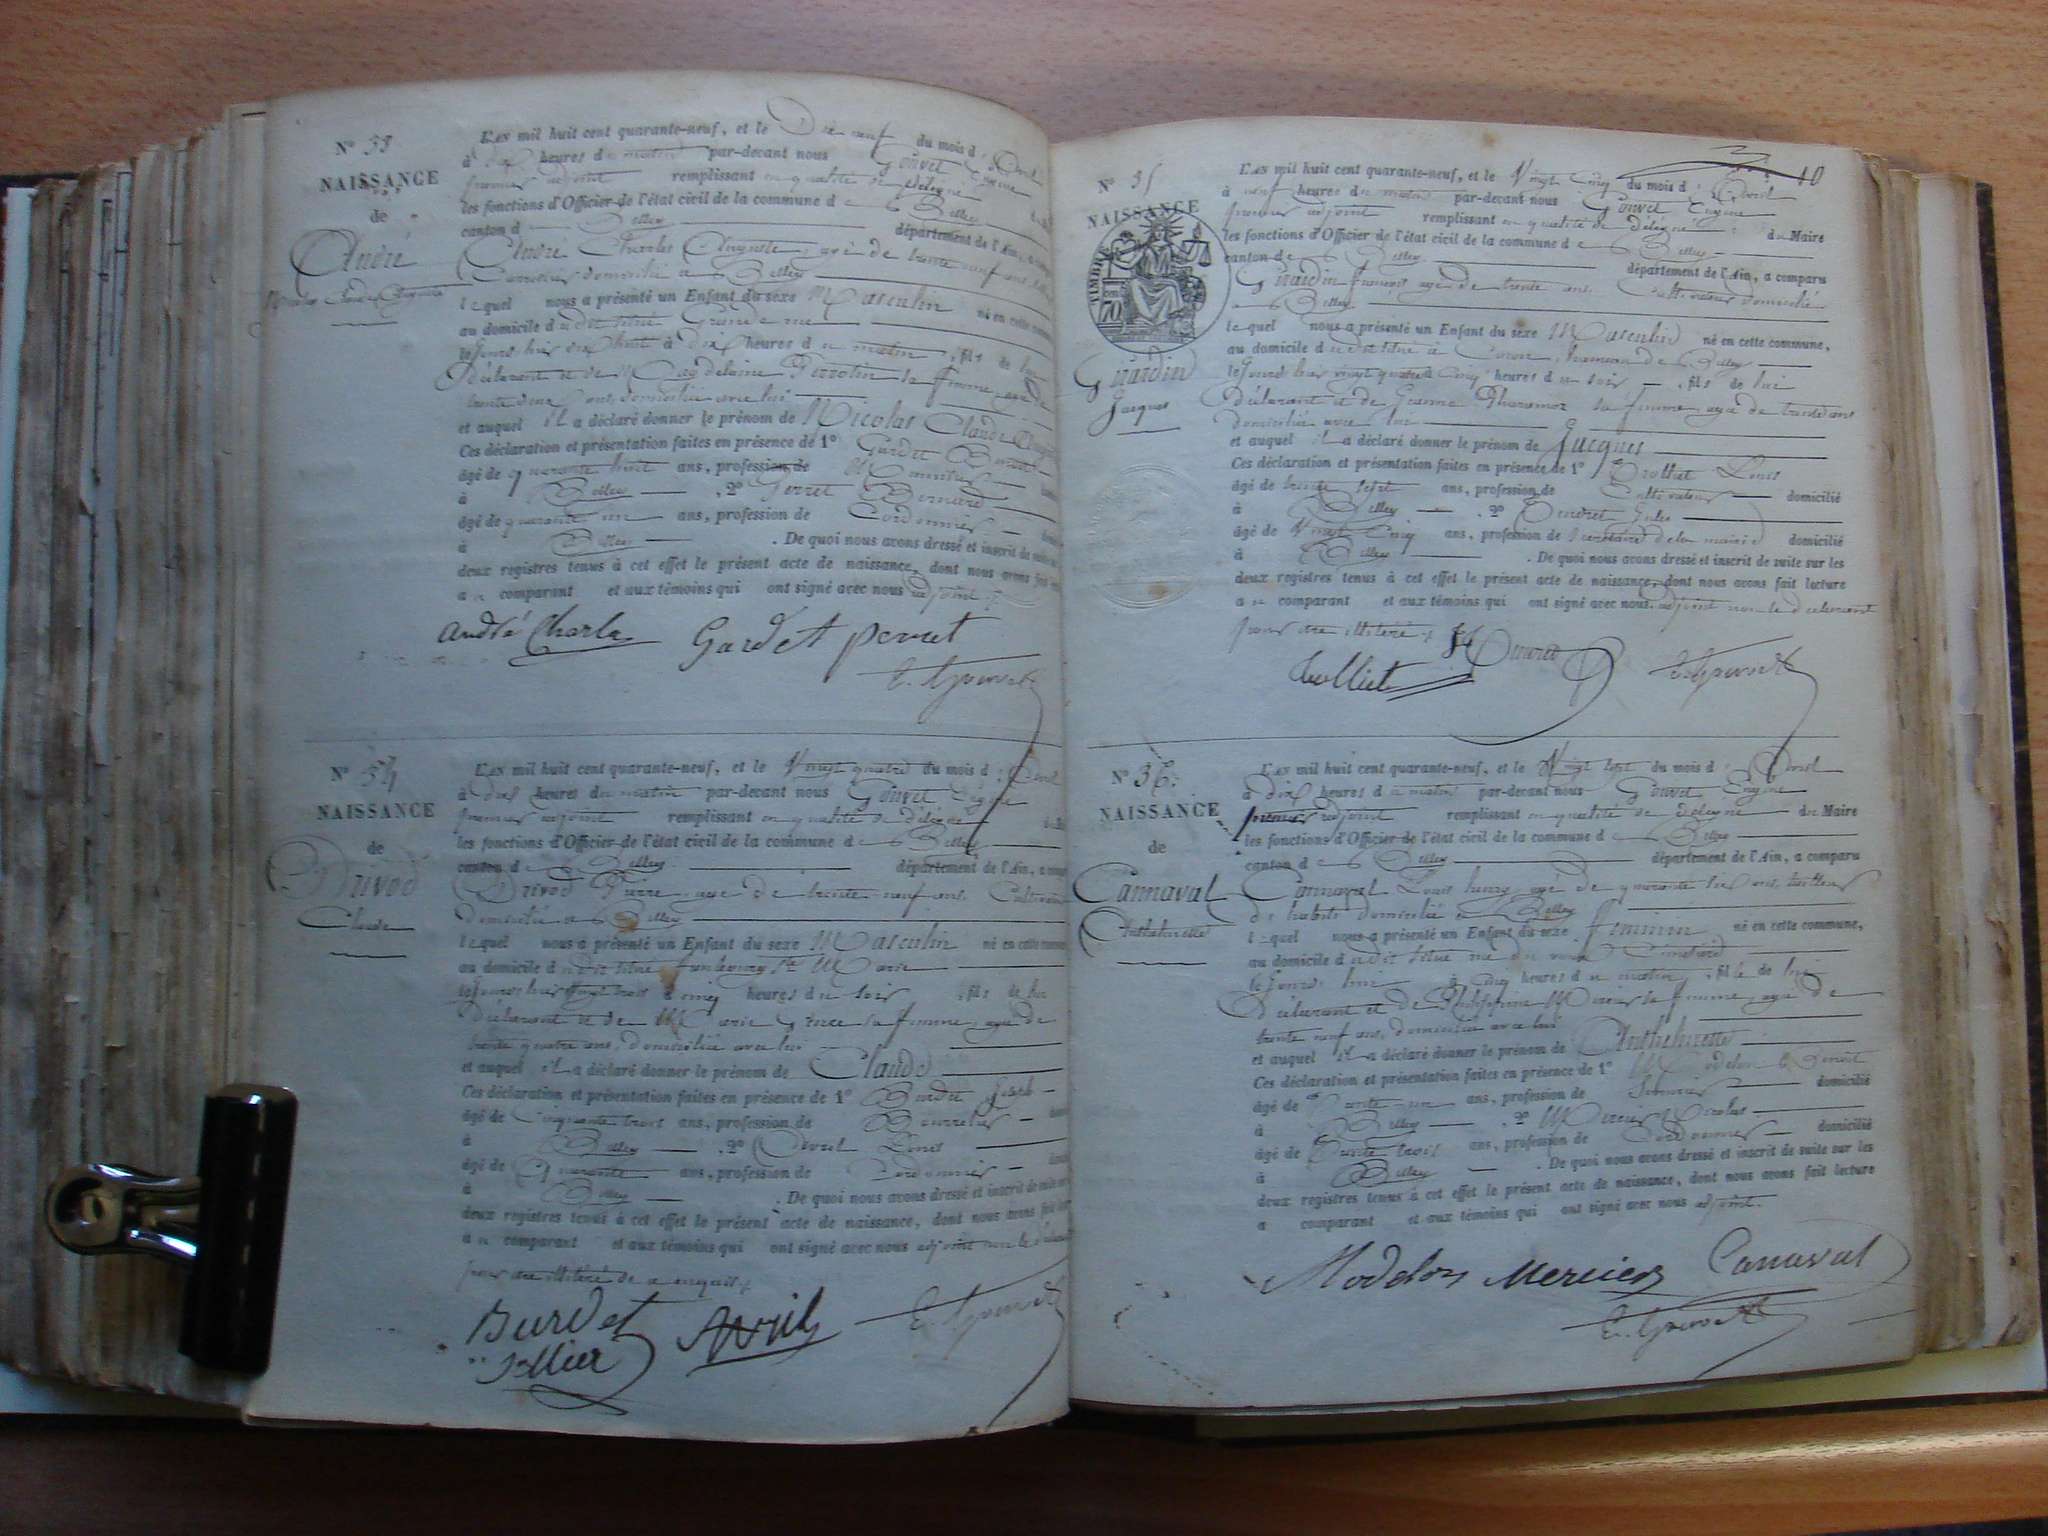 N° 33
NAISSANCE
de
André
Nicolas Claude Auguste
L'AN mil huit cent quarante-neuf, et le Dix neuf du mois d'Avril
à dix heures du matin par-devant nous Gouvet Eugène
premier adjoint remplissant en qualité de délégué
les fonctions d'Officier de l'état civil de la commune de Belley
canton de Belley département de l'Ain, a comparu
André Charles Auguste, agé de trente neuf ans,
domicilié à Belley
lequel nous a présenté un Enfant du sexe Masculin né en cette commune
au domicile du dit titué Grande rue
le jour d'hier dix huit à dix heures du matin, fils de lui
Déclarant et de Magdelaine Perrotin sa femme, agée de
trente deux ans, domiciliée avec lui
et auquel il a déclaré donner le prénom de Nicolas Claude Auguste
Ces déclaration et présentation faites en présence de 1° Gardet
âgé de quarante huit ans, profession de Menuisier
à Belley 2° Perret Bernard
âgé de quarante un ans, profession de Cordonnier
à Belley. De quoi nous avons dressé et inscrit de suite
deux registres tenus à cet effet le présent acte de naissance, dont nous avons fait
au comparant et aux témoins qui ont signé avec nous adjoint
André Charles Gardet perret
E. Gouvet
N° 34
NAISSANCE
de
Drivod
Claude
L'AN mil huit cent quarante-neuf, et le Vingt quatre du mois d'Avril
à dix heures du matin par-devant nous Gouvet Eugène
premier adjoint remplissant en qualité de délégué
les fonctions d'Officier de l'état civil de la commune de Belley
canton de Belley département de l'Ain, a comparu
Drivod Pierre, agé de trente neuf ans, Cultivateur
domicilié à Belley
lequel nous a présenté un Enfant du sexe Masculin né en cette commune
au domicile du dit titué faubourg Ste Marie
le jour d'hier vingt trois à cinq heures du soir, fils de lui
Déclarant et de Marie sa femme, agée de
trente quatre ans, domiciliée avec lui
et auquel il a déclaré donner le prénom de Claude
Ces déclaration et présentation faites en présence de 1° Burdet Joseph
âgé de Cinquante trois ans, profession de Bourrelier
à Belley 2° Avril Louis
âgé de Quarante ans, profession de Cordonnier
à Belley. De quoi nous avons dressé et inscrit de suite
deux registres tenus à cet effet le présent acte de naissance, dont nous avons fait
au comparant et aux témoins qui ont signé avec nous adjoint non le déclarant
pour être illitéré de ce enquis
Burdet Avril E. Gouvet
10
N° 35
NAISSANCE
TIMBRE
70
Girardin
Jacques
L'AN mil huit cent quarante-neuf, et le Vingt Cinq du mois d'Avril
à neuf heures du matin par-devant nous Gouvet Eugène
premier adjoint remplissant en qualité de délégué du Maire
les fonctions d'Officier de l'état civil de la commune de Belley
canton de Belley département de l'Ain, a comparu
Girardin françois agé de trente ans, Cultivateur domicilié
à Belley
lequel nous a présenté un Enfant du sexe Masculin né en cette commune,
au domicile du dit titué à Coron, hameau de Belley
le jour d'hier vingt quatre à Cinq heures du soir, fils de lui
déclarant et de Jeanne sa femme, agée de trente ans
domiciliée avec lui
et auquel il a déclaré donner le prénom de Jacques
Ces déclaration et présentation faites en présence de 1° Trolliet Louis
âgé de trente sept ans, profession de Cultivateur domicilié
à Belley 2° Jules
âgé de Vingt Cinq ans, profession de secrétaire de la mairie domicilié
à Belley. De quoi nous avons dressé et inscrit de suite sur les
deux registres tenus à cet effet le présent acte de naissance, dont nous avons fait lecture
au comparant et aux témoins qui ont signé avec nous adjoint non le déclarant
pour être illitéré
Trolliet E. Gouvet
N° 36
NAISSANCE
de
Cannaval
Anthelmette
L'AN mil huit cent quarante-neuf, et le Vingt sept du mois d'Avril
à dix heures du matin par-devant nous Gouvet Eugène
premier adjoint remplissant en qualité de délégué du Maire
les fonctions d'Officier de l'état civil de la commune de Belley
canton de Belley département de l'Ain, a comparu
Cannaval Louis henry, agé de quarante six ans, tailleur
de habits domicilié à Belley
lequel nous a présenté un Enfant du sexe féminin né en cette commune,
au domicile du dit titué rue du vieux Cimetière
le jour hui à Cinq heures du matin, fille de lui
Déclarant et de Philippine Mercier sa femme, agée de
trente neuf ans, domiciliée avec lui
et auquel il a déclaré donner le prénom de Anthelmette
Ces déclaration et présentation faites en présence de 1° Modelon Benoit
âgé de Trente un ans, profession de domicilié
à Belley 2° Mercier Nicolas
âgé de Trente trois ans, profession de Cordonnier domicilié
à Belley. De quoi nous avons dressé et inscrit de suite sur les
deux registres tenus à cet effet le présent acte de naissance, dont nous avons fait lecture
a comparant et aux témoins qui ont signé avec nous adjoint.
Modelon Mercier Canaval
E. Gouvet